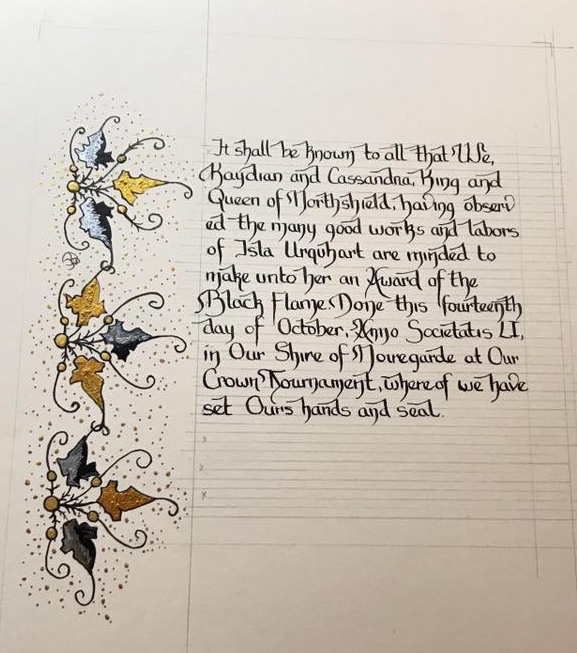 It shall be known to all that We,
Kaydian and Cassandra, King and
Queen of Northshield, having observ
ed the many good works and labors
of Isla Urquhart are minded to
make unto her an Award of the
Black Flame. Done this fourteenth
day of October, Anno Societatis LI,
in Our Shire of Mouregarde at Our
Crown Tournament, whereof we have
set Ours hands and seal.